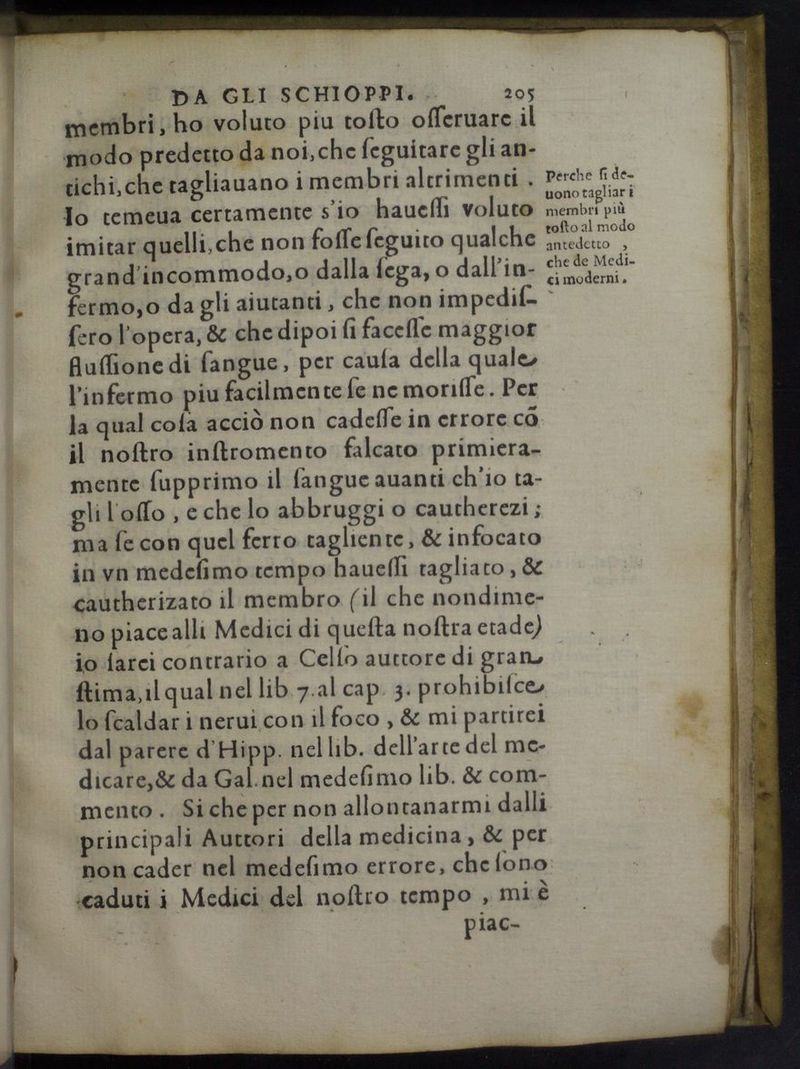 DA GLI SCHIOPPI. 205
membri, ho voluto piu toſto oſſeruare il
modo predetto da noi, che ſeguitare gli an-
tichi, che tagliauano i membri altrimenti .
Io temeua certamente s'io haueſſi voluto
imitar quelli, che non foſſe ſeguito qualche
grand'incommodo, o dalla ſega, o dall'in-
fermo, o da gli aiutanti, che non impediſ-
ſero l'opera, & che dipoi ſi faceſſe maggior
fluſſione di ſangue, per cauſa della quale
l'infermo piu facilmente ſe ne moriſſe. Per
la qual coſa acciò non cadeſſe in errore cõ
il noſtro inſtromento falcato primiera-
mente ſupprimo il ſangue auanti ch'io ta-
gli l'oſſo , e che lo abbruggi o cautherezi ;
ma ſe con quel ferro tagliente, & infocato
in vn medeſimo tempo haueſſi tagliato, &
cautherizato il membro (il che nondime-
no piace alli Medici di queſta noſtra etade)
io ſarei contrario a Celſo auttore di gran
ſtima, il qual nel lib. 7. al cap. 3. prohibiſce
lo ſcaldar i nerui con il foco , & mi partirei
dal parere d'Hipp. nel lib. dell'arte del me-
dicare, & da Gal. nel medeſimo lib. & com-
mento . Si che per non allontanarmi dalli
principali Auttori della medicina, & per
non cader nel medeſimo errore, che ſono
caduti i Medici del noſtro tempo , mi è
piac-
Perche ſi de-
uono tagliar i
membri più
toſto al modo
antedetto ,
che de Medi-
ci moderni.